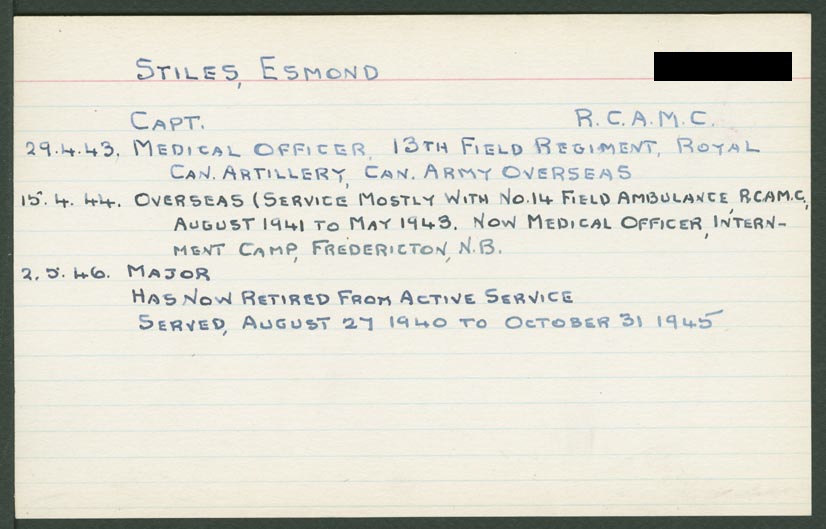 STILES, ESMOND
CAPT. R.C.A.M.C.
29.4.43. MEDICAL OFFICER, 13TH FIELD REGIMENT, ROYAL
CAN. ARTILLERY, CAN. ARMY OVERSEAS
15.4.44. OVERSEAS (SERVICE MOSTLY WITH NO.14 FIELD AMBULANCE, R.C.A.M.C.,
AUGUST 1941 TO MAY 1943. NOW MEDICAL OFFICER, INTERN-
MENT CAMP, FREDERICTON, N.B.
2.5.46. MAJOR
HAS NOW RETIRED FROM ACTIVE SERVICE
SERVED, AUGUST 27 1940 TO OCTOBER 31 1945